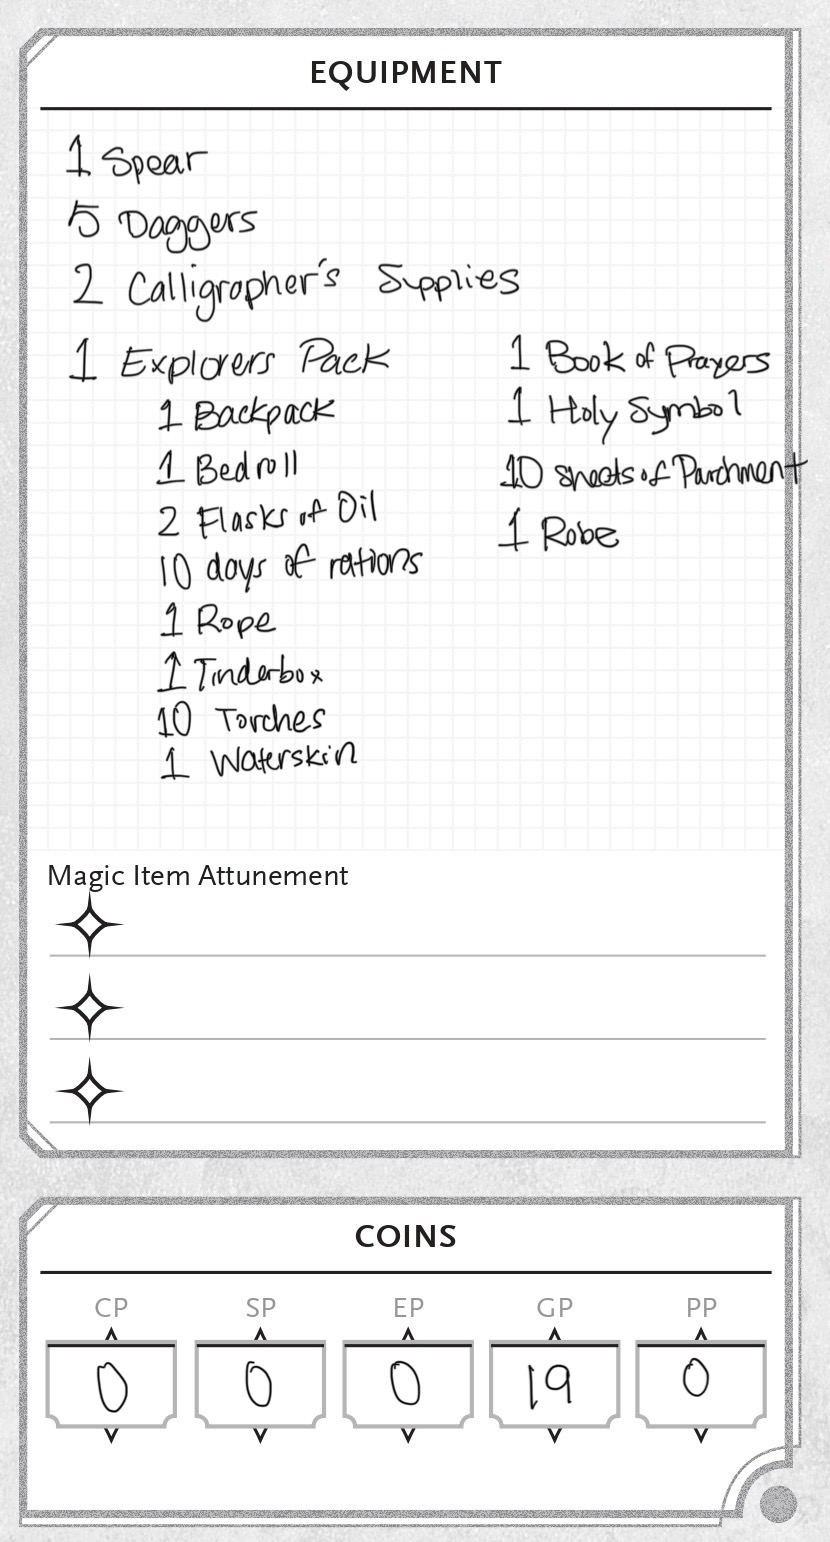 EQUIPMENT
1 Spear
5 Daggers
2 Calligropher's Supplies
1 Explorers Pack
1 Backpack
1 Bedroll
2 Flasks of Oil
10 days of rations
1 Rope
1 Tinderbox
10 Torches
1 Waterskin
1 Book of Prayers
1 Holy Symbol
10 sheets of Parchment
1 Robe
Magic Item Attunement
COINS
CP SP EP GP PP
0 0 0 19 0